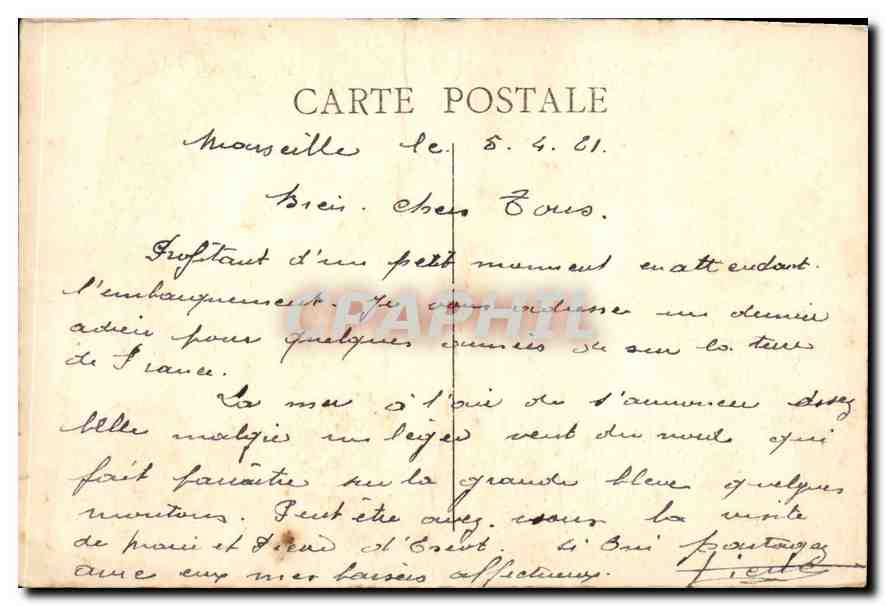 CARTE POSTALE
Marseille le 5. 4. 21.
Bien. chers Tous.
Profitant d'un petit moment en attendant
l'embarquement. Je vous adresse un dernier
adieu pour quelques années de sur la terre
de France.
La mer à l'air de s'annoncer assez
belle malgré un léger vent du nord qui
fait paraître sur la grande bleue quelques
moutons. Peut être avez. vous la visite
de et Pierre d' Si oui partagez
avec eux mes baisers affectueux.
CPAPHIL